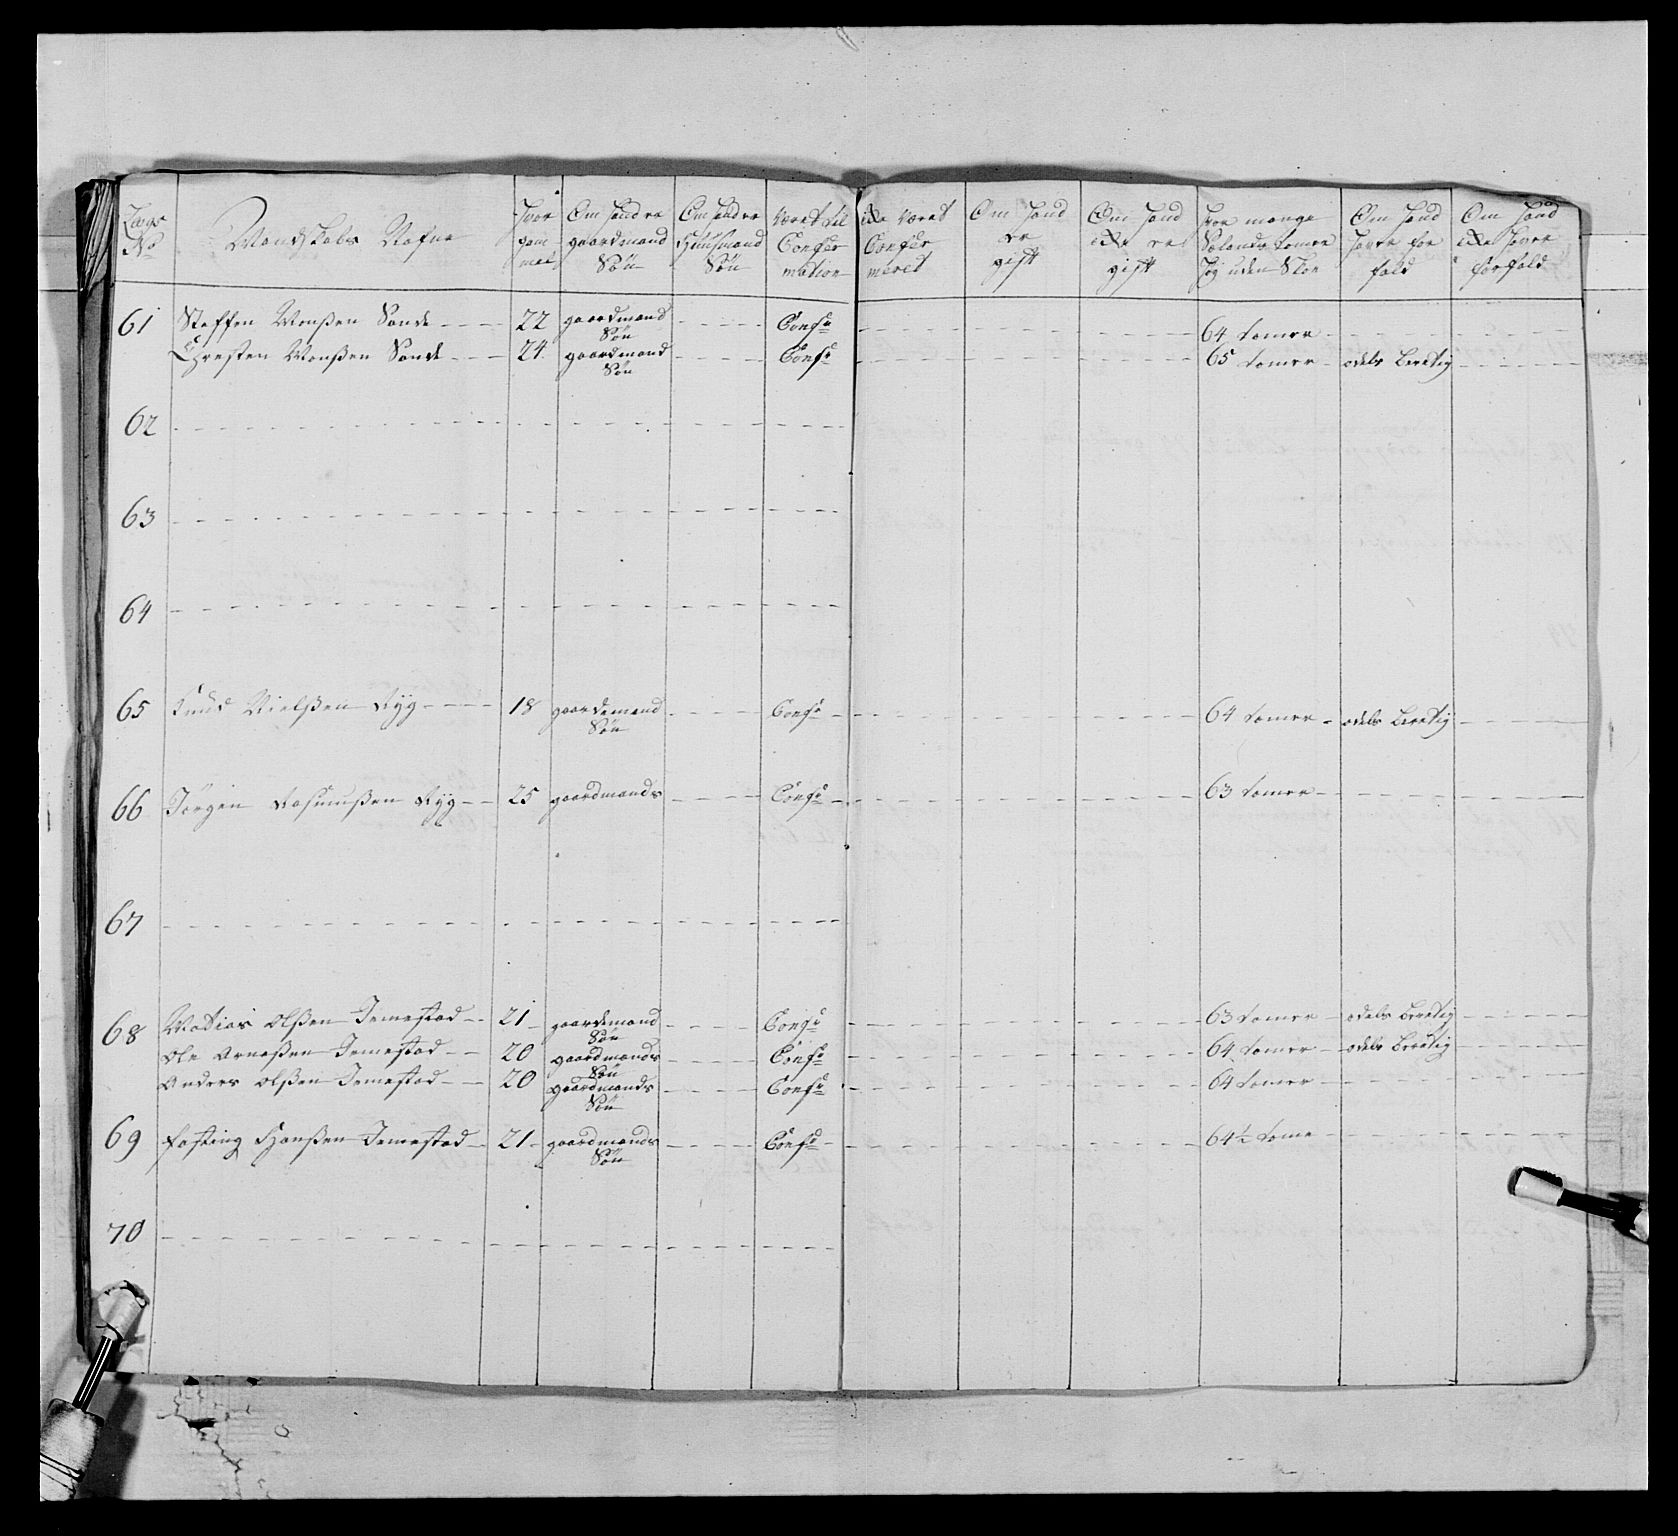 Lægs No | Mandskabs Nafne | Hvor gam mel | Om Hand er gaardmand Søn | Om Hand er Huusmand Søn | Været til Confir mation | ikke Været Confir meret | Om Hand er gift | Om Hand ikke er gift | Hvor mange Sælands tomer Høy uden Skoe | Om Hand Haver for fald | Om Hand ikke Haver forfald
61 Steffen Monßen Sande 22 gaardmand Søn Confr 64 tomer
Christen Monßen Sande 24 gaardmand Søn Confr 65 tomer odels Beretig
62
63
64
65 Knud Nielßen Ryg 18 gaardemand Søn Confr 64 tomer odels Beretig
66 Jørgen Rasmußen Ryg 25 gaardmands Confr 63 tomer
67
68 Matias Olßen Jemestad 21 gaardemand Søn Confr 63 tomer odels Beretig
Ole Arneßen Jemestad 20 gaardmands Søn Confr 64 tomer odels Beretig
Anders Olßen Jemestad 20 gaardmands Søn Confr 64 tomer
69 Fasting Hanßen Jemestad 21 gaardmands Søn Confr 64½ tome
70